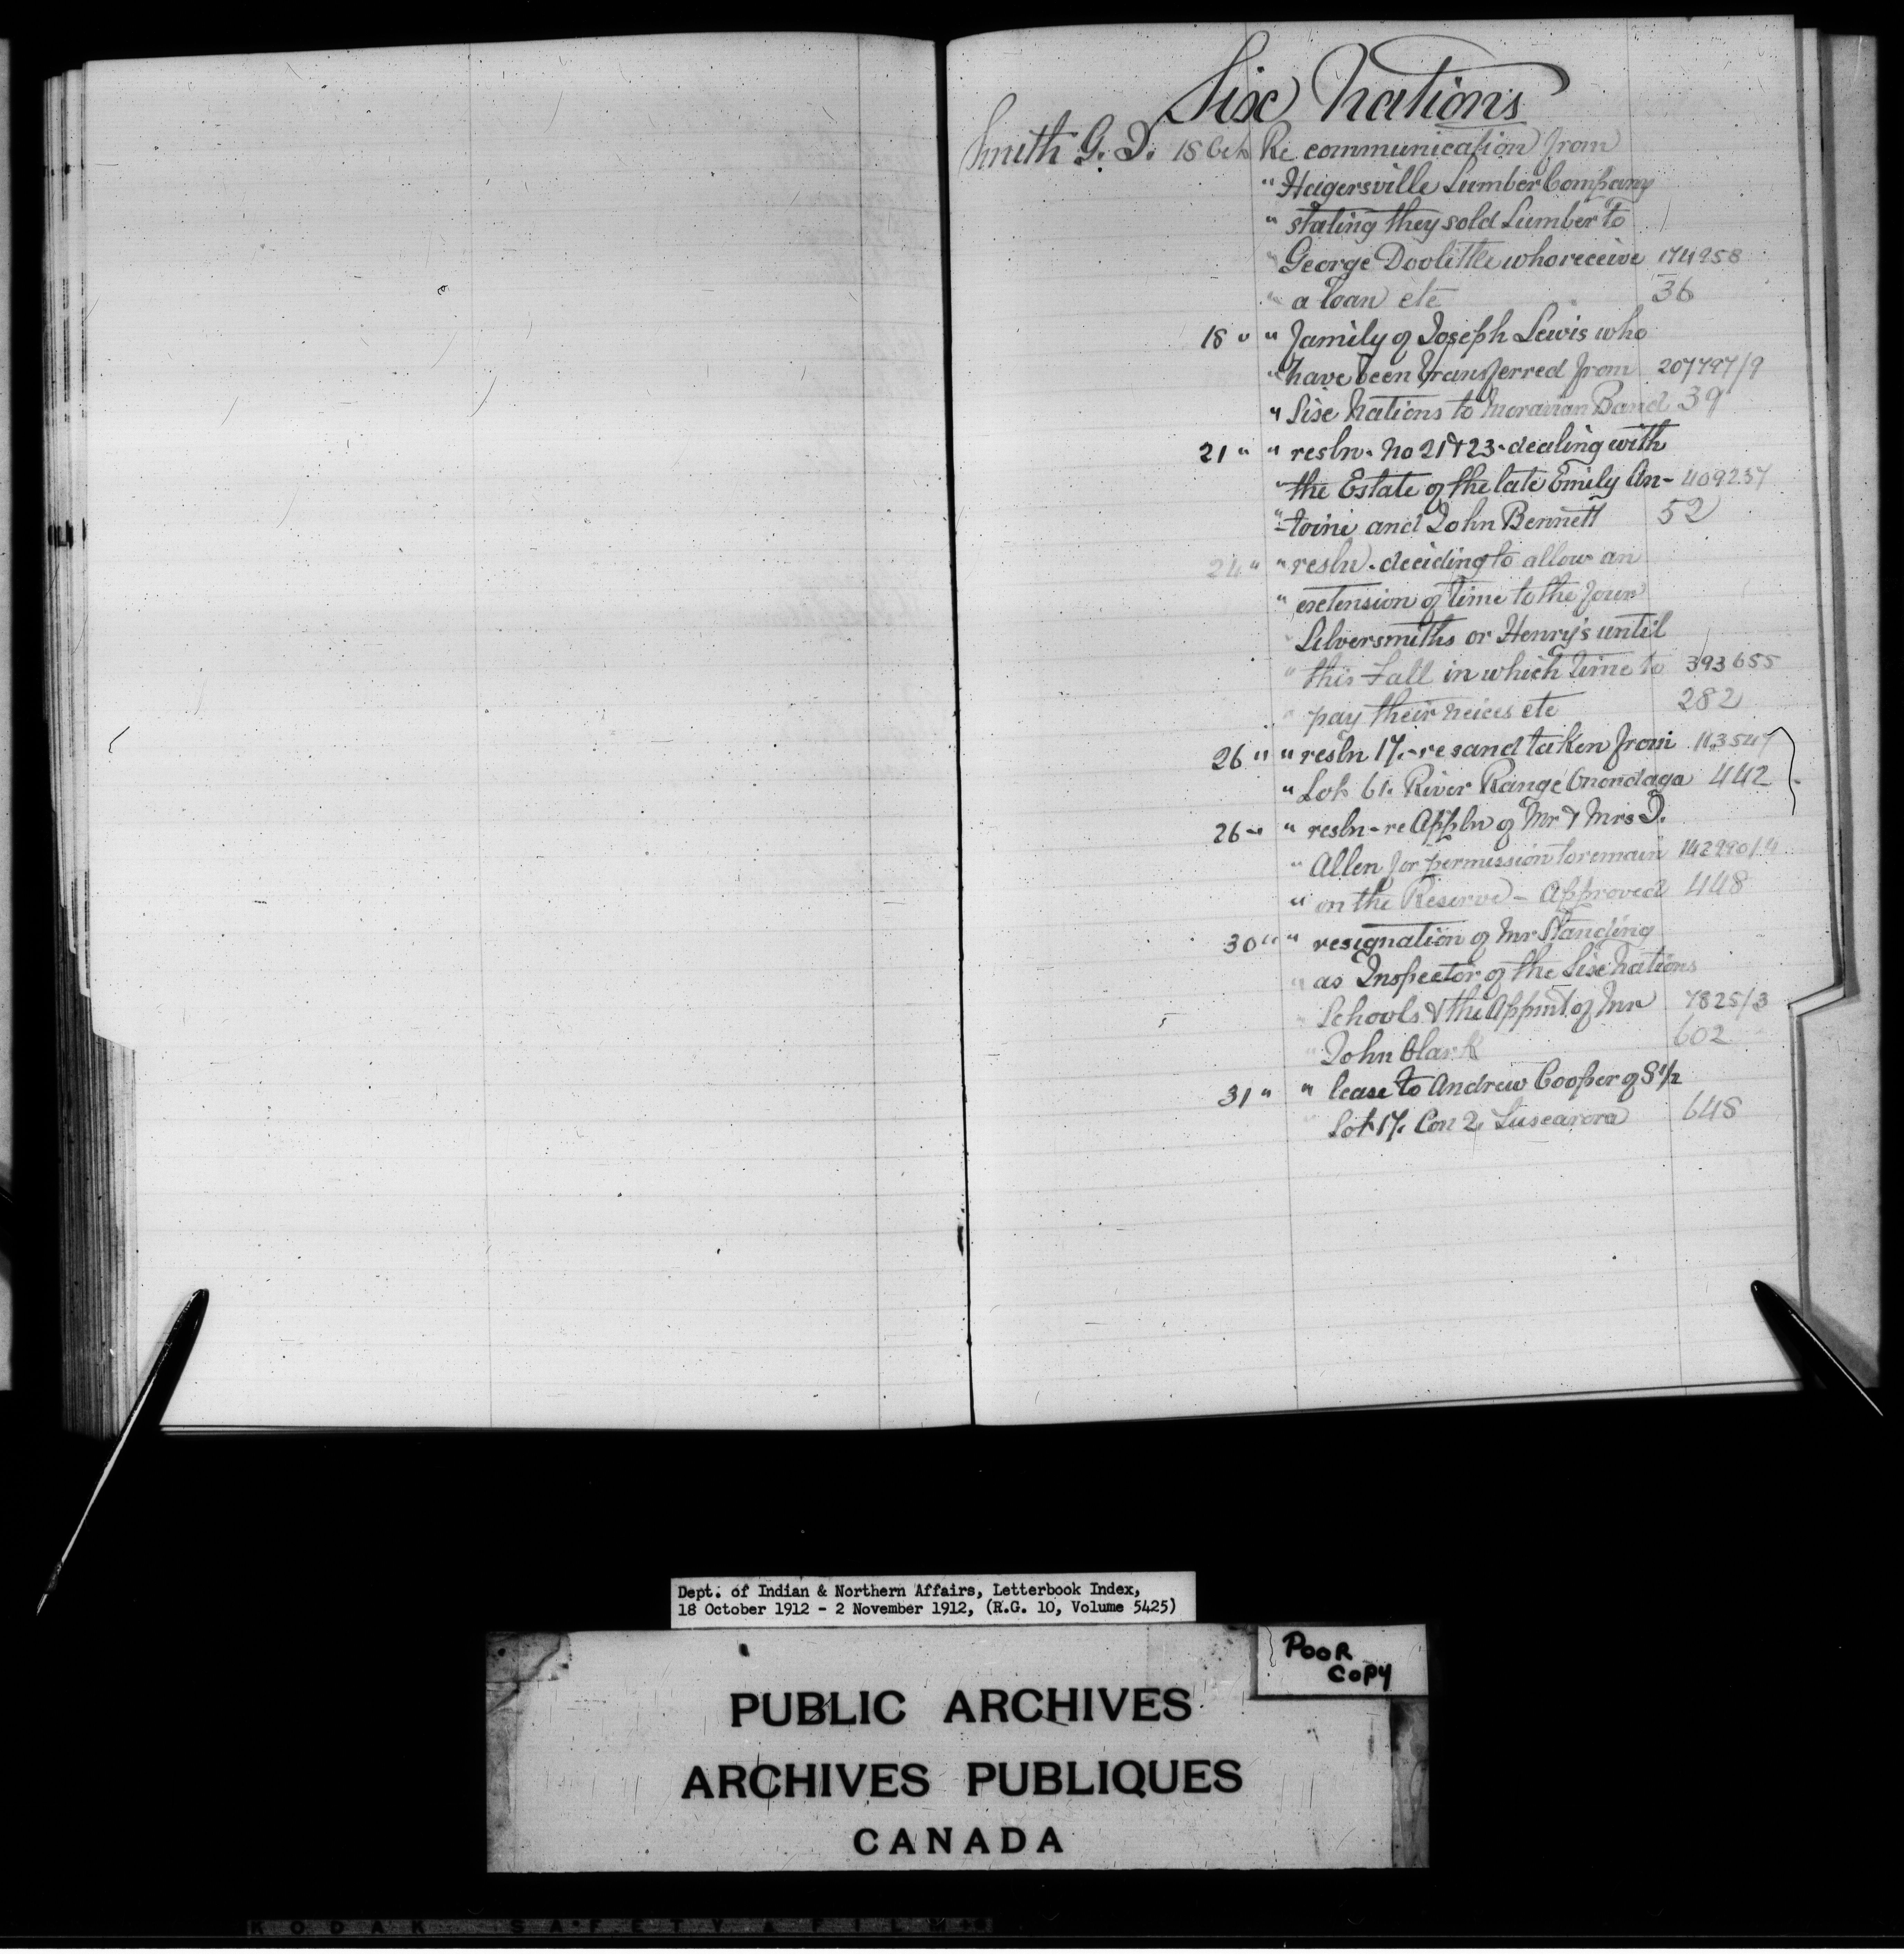 Six Nations
Smith G. D. 18 Oct Re communication from
" Hagersville Lumber Company
" stating they sold Lumber to
" George Doolittle who receive 174258
" a loan etc 36
18 " " family of Joseph Lewis who
" have been transferred from 207797/9
" Six Nations to Moravian Band 39
21 " " resln. No 21 & 23 - dealing with
" the Estate of the late Emily An- 409257
" -toine and John Bennett 52
24 " " resln. deciding to allow an
" extension of time to the four
" Silversmiths or Henry's until
" this Fall in which time to 393655
" pay their neices etc 282
26 " " resln 17. - re sand taken from 113547
" Lot 61. River Range Onondaga 442
26 " " resln - re Appln of Mr & Mrs D.
" Allen for permission to remain 142290/4
" on the Reserve - Approved 448
30 " " resignation of Mr Standing
" as Inspector of the Six Nations
" Schools & the Appmt of Mr 7825/3
" John Clark 602
31 " " lease to Andrew Cooper of S 1/2
" Lot 17. Con 2, Tuscarora 648
Dept. of Indian & Northern Affairs, Letterbook Index,
18 October 1912 - 2 November 1912, (R.G. 10, Volume 5425)
POOR
COPY
PUBLIC ARCHIVES
ARCHIVES PUBLIQUES
CANADA
KODAK SAFETY FILM